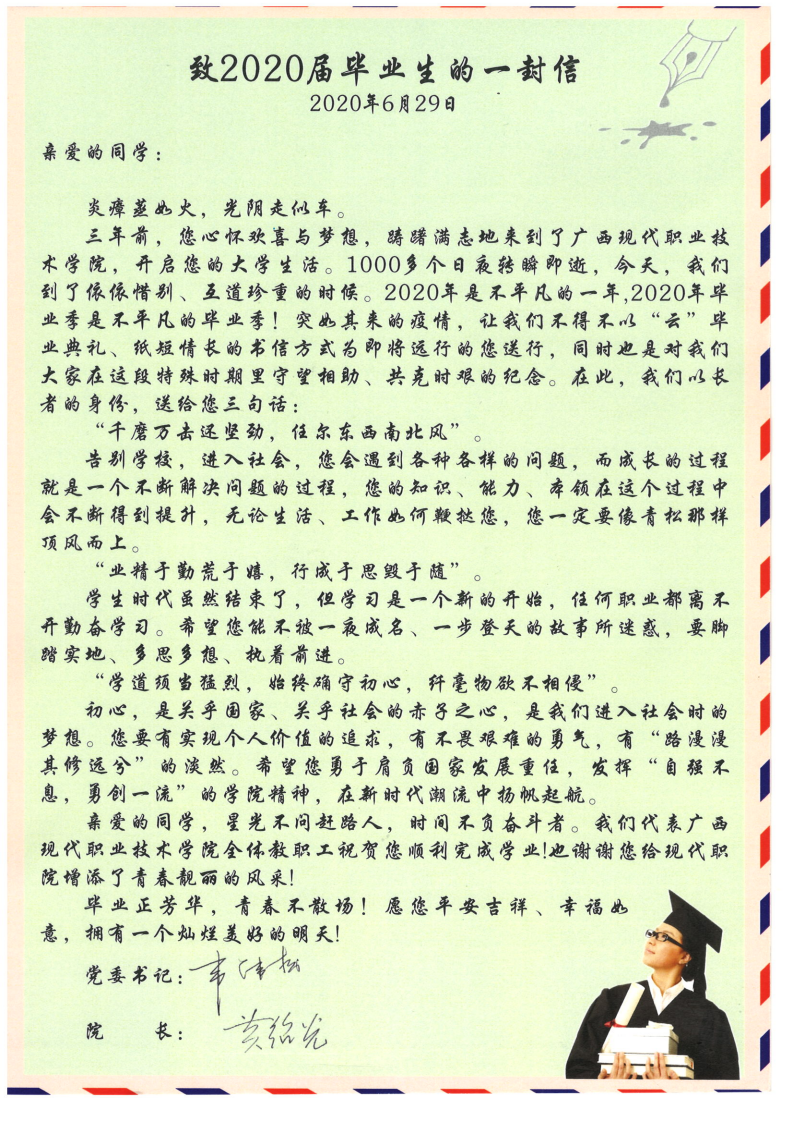 致2020届毕业生的一封信
2020年6月29日
亲爱的同学：
炎瘴蒸如火，光阴走似车。
三年前，您心怀欢喜与梦想，踌躇满志地来到了广西现代职业技
术学院，开启您的大学生活。1000多个日夜转瞬即逝，今天，我们
到了依依惜别、互道珍重的时候。2020年是不平凡的一年,2020年毕
业季是不平凡的毕业季！突如其来的疫情，让我们不得不以“云”毕
业典礼、纸短情长的书信方式为即将远行的您送行，同时也是对我们
大家在这段特殊时期里守望相助、共克时艰的纪念。在此，我们以长
者的身份，送给您三句话：
“千磨万击还坚劲，任尔东西南北风”。
告别学校，进入社会，您会遇到各种各样的问题，而成长的过程
就是一个不断解决问题的过程，您的知识、能力、本领在这个过程中
会不断得到提升，无论生活、工作如何鞭挞您，您一定要像青松那样
顶风而上。
“业精于勤荒于嬉，行成于思毁于随”。
学生时代虽然结束了，但学习是一个新的开始，任何职业都离不
开勤奋学习。希望您能不被一夜成名、一步登天的故事所迷惑，要脚
踏实地、多思多想、执着前进。
“学道须当猛烈，始终确守初心，纤毫物欲不相侵”。
初心，是关乎国家、关乎社会的赤子之心，是我们进入社会时的
梦想。您要有实现个人价值的追求，有不畏艰难的勇气，有“路漫漫
其修远兮”的淡然。希望您勇于肩负国家发展重任，发挥“自强不
息，勇创一流”的学院精神，在新时代潮流中扬帆起航。
亲爱的同学，星光不问赶路人，时间不负奋斗者。我们代表广西
现代职业技术学院全体教职工祝贺您顺利完成学业!也谢谢您给现代职
院增添了青春靓丽的风采!
毕业正芳华，青春不散场！愿您平安吉祥、幸福如
意，拥有一个灿烂美好的明天!
党委书记：
院 长：